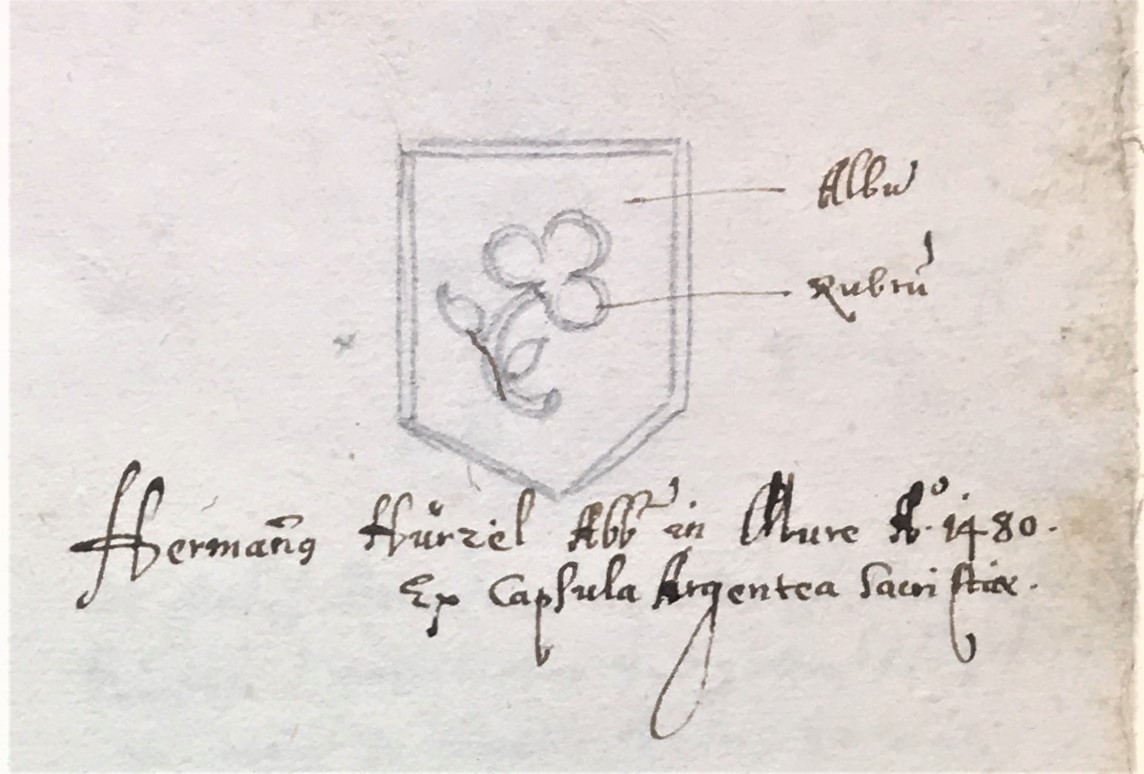 Albū
Rubrū
Hermañ9 Hürzel Abb in Mure Ao. 1480.
Ex Capsula Argentea Sacristiæ.